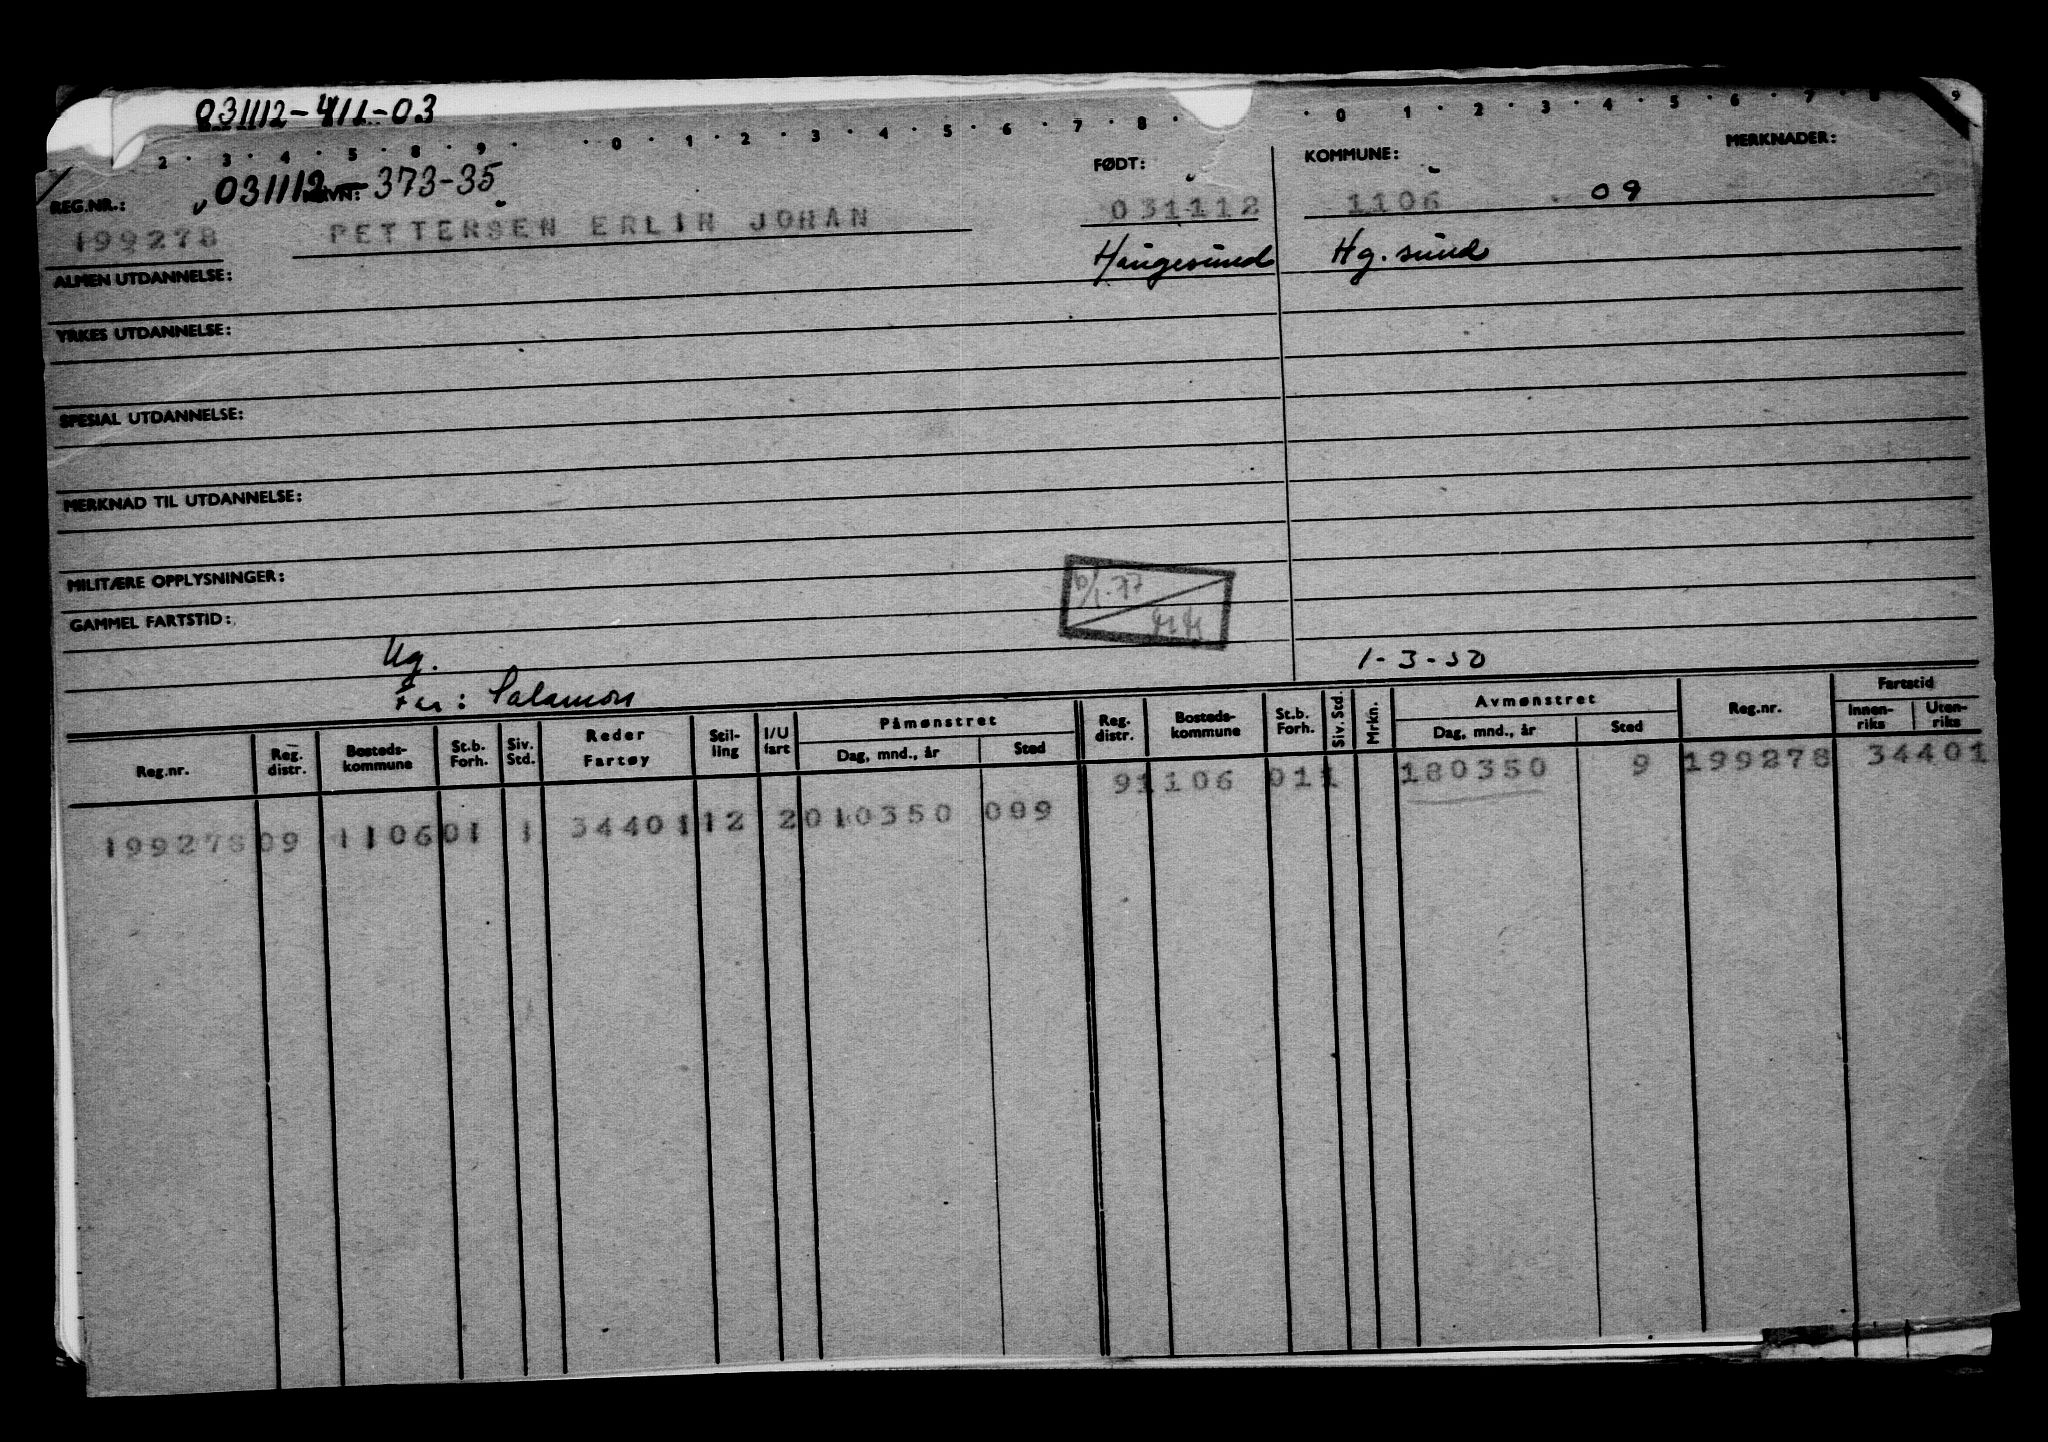 031112-411-03
2 · 3 · 4 · 5 · 8 · 9 · · 0 · 1 · 2 · 3 · 4 · 5 · 6 · 7 · 8 · · 0 · 1 · 2 · 3 · 4 · 5 · 6 · 7 · 8 · 9
REG.NR.: NAVN: FØDT: KOMMUNE: MERKNADER:
031112-373-35
199278 PETTERSEN ERLIH JOHAN 031112 1106 09
Haugesund Hg.sund
ALMEN UTDANNELSE:
YRKES UTDANNELSE:
SPESIAL UTDANNELSE:
MERKNAD TIL UTDANNELSE:
MILITÆRE OPPLYSNINGER:
GAMMEL FARTSTID:
6/1-77
Ug. 1-3-50
Far: Salamon
Reg.nr. Reg. distr. Bosteds-kommune St.b. Forh. Siv. Std. Reder Fartøy Stil-ling I/U fart Påmønstret Dag, mnd., år Sted Reg. distr. Bosteds-kommune St.b. Forh. Siv. Std. Mrkn. Avmønstret Dag, mnd., år Sted Reg.nr. Fartstid Innen-riks Uten-riks
9 1106 01 1 180350 9 199278 34401
199278 09 1106 01 1 34401 12 2 010350 009